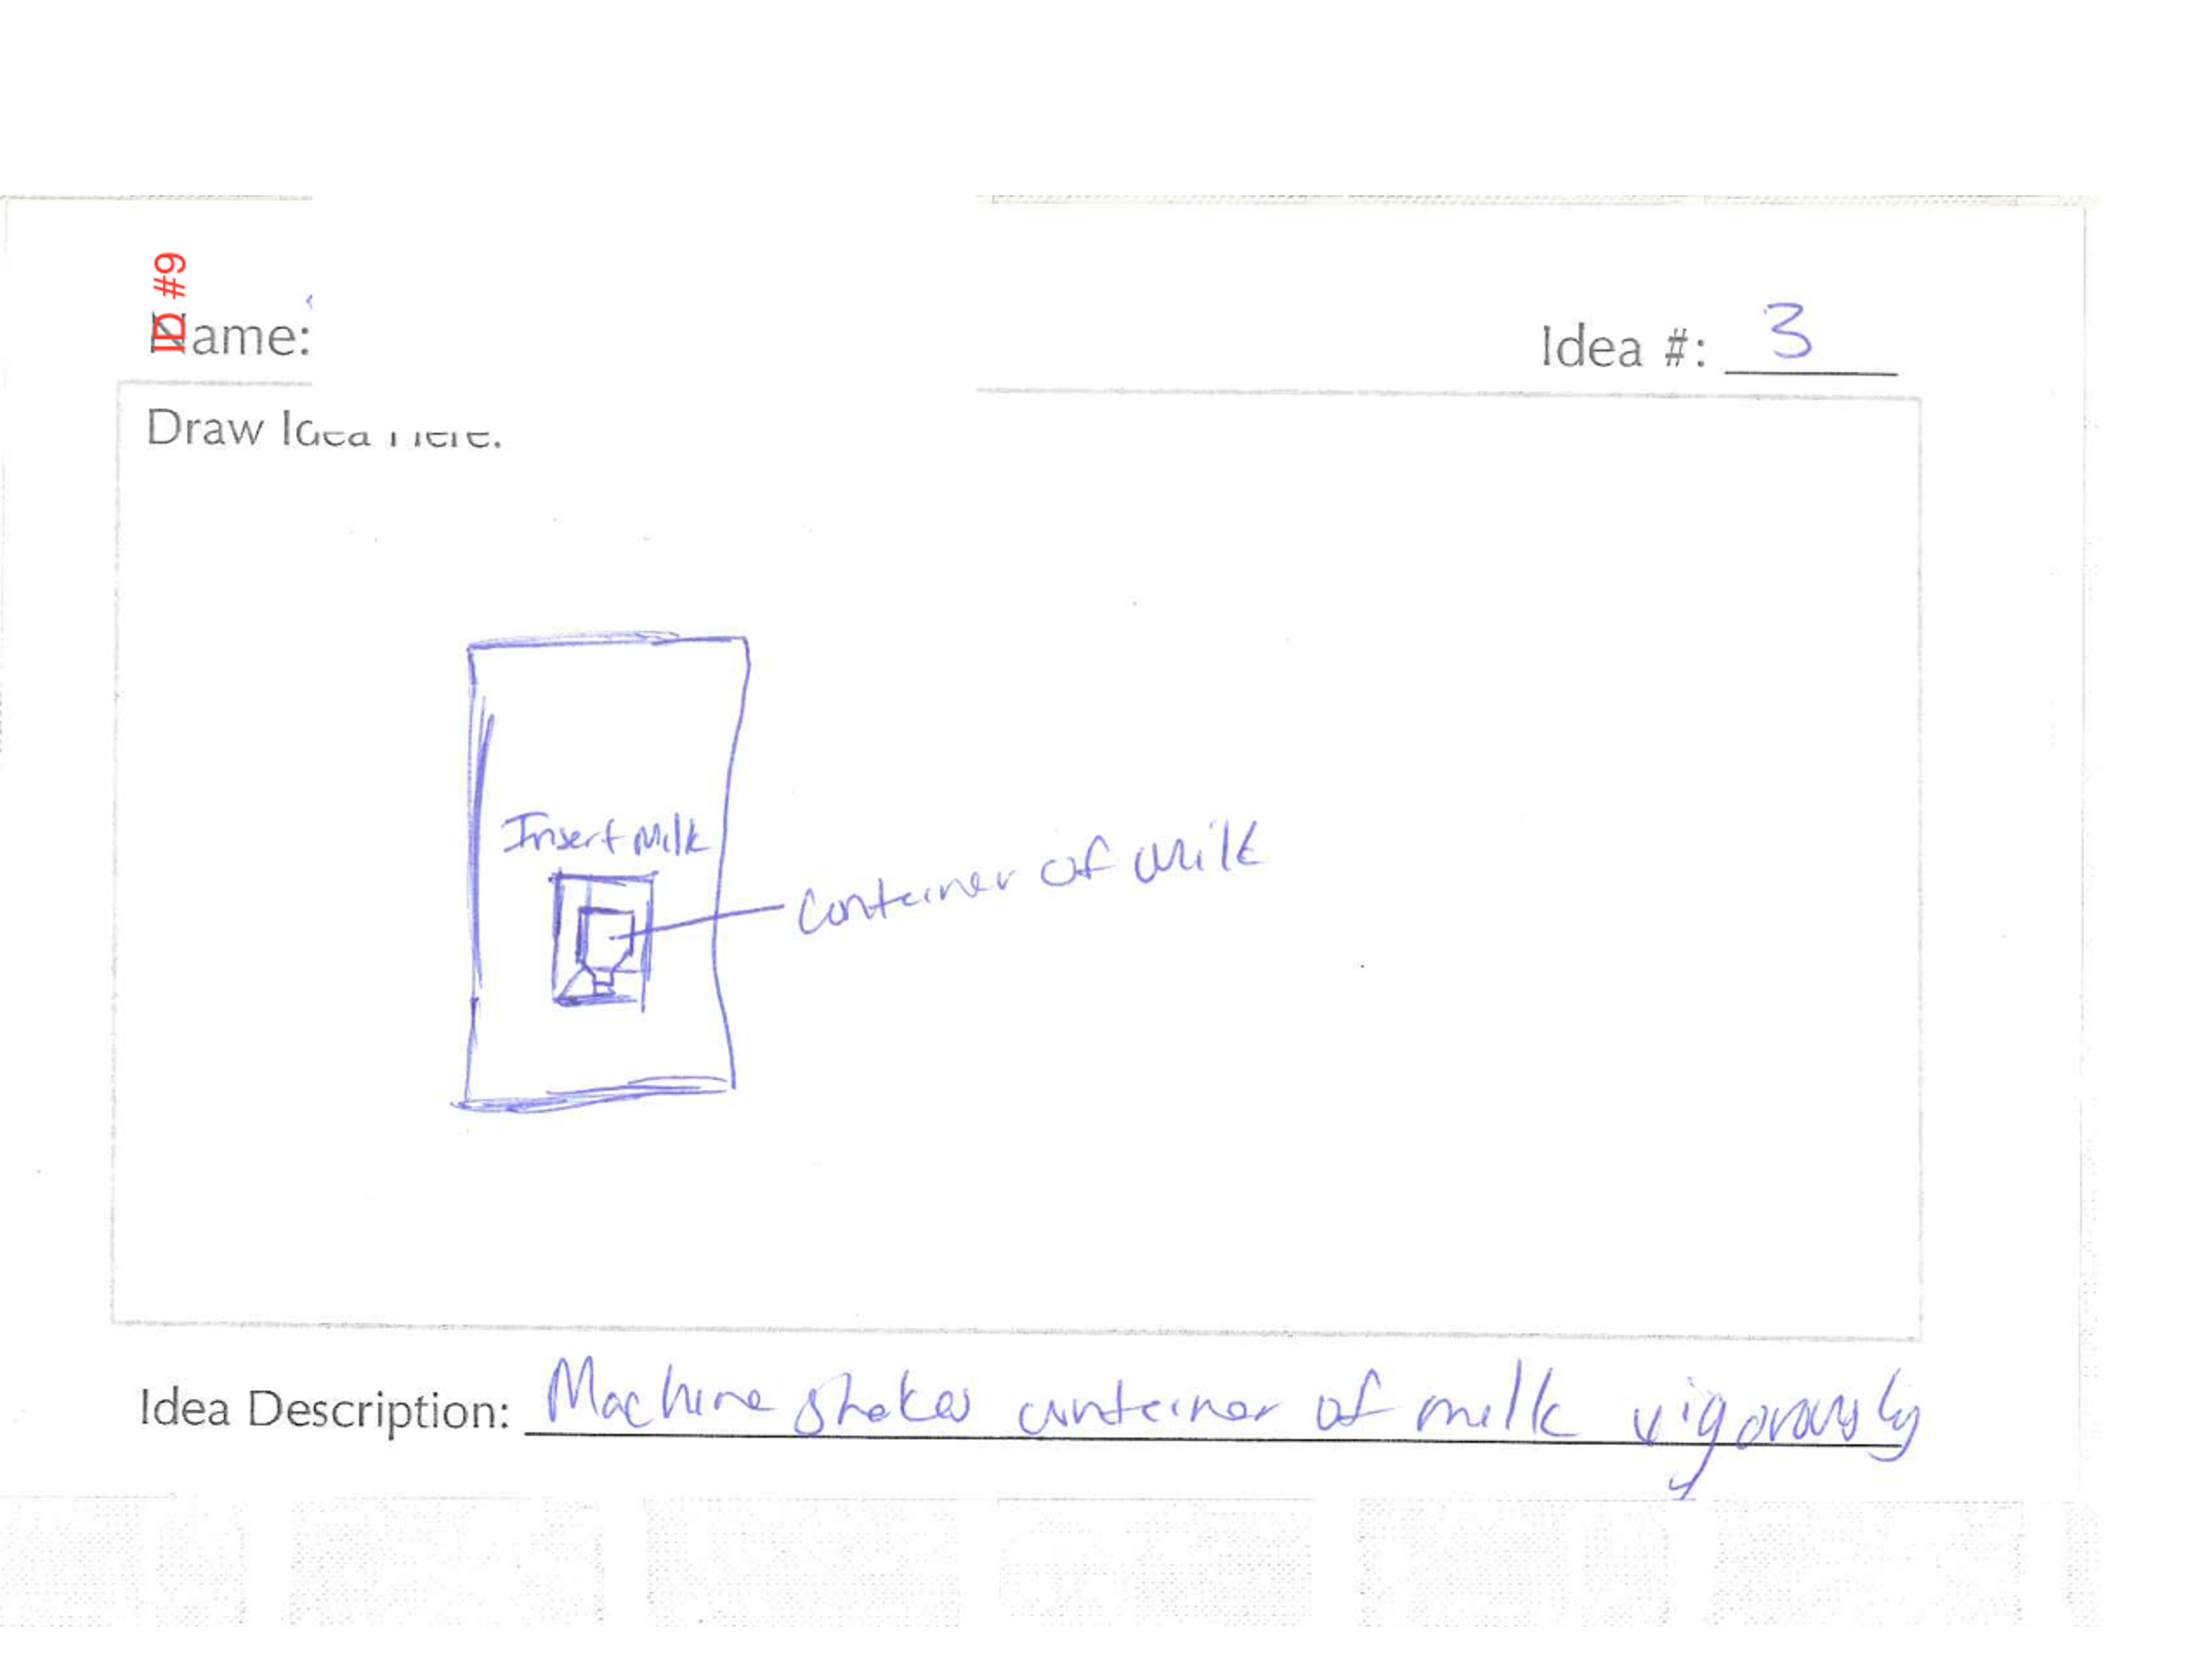 ID #9
Name:
Idea #: 3
Draw Idea Here:
Insert Milk
Container of milk
Idea Description: Machine shakes container of milk vigorously